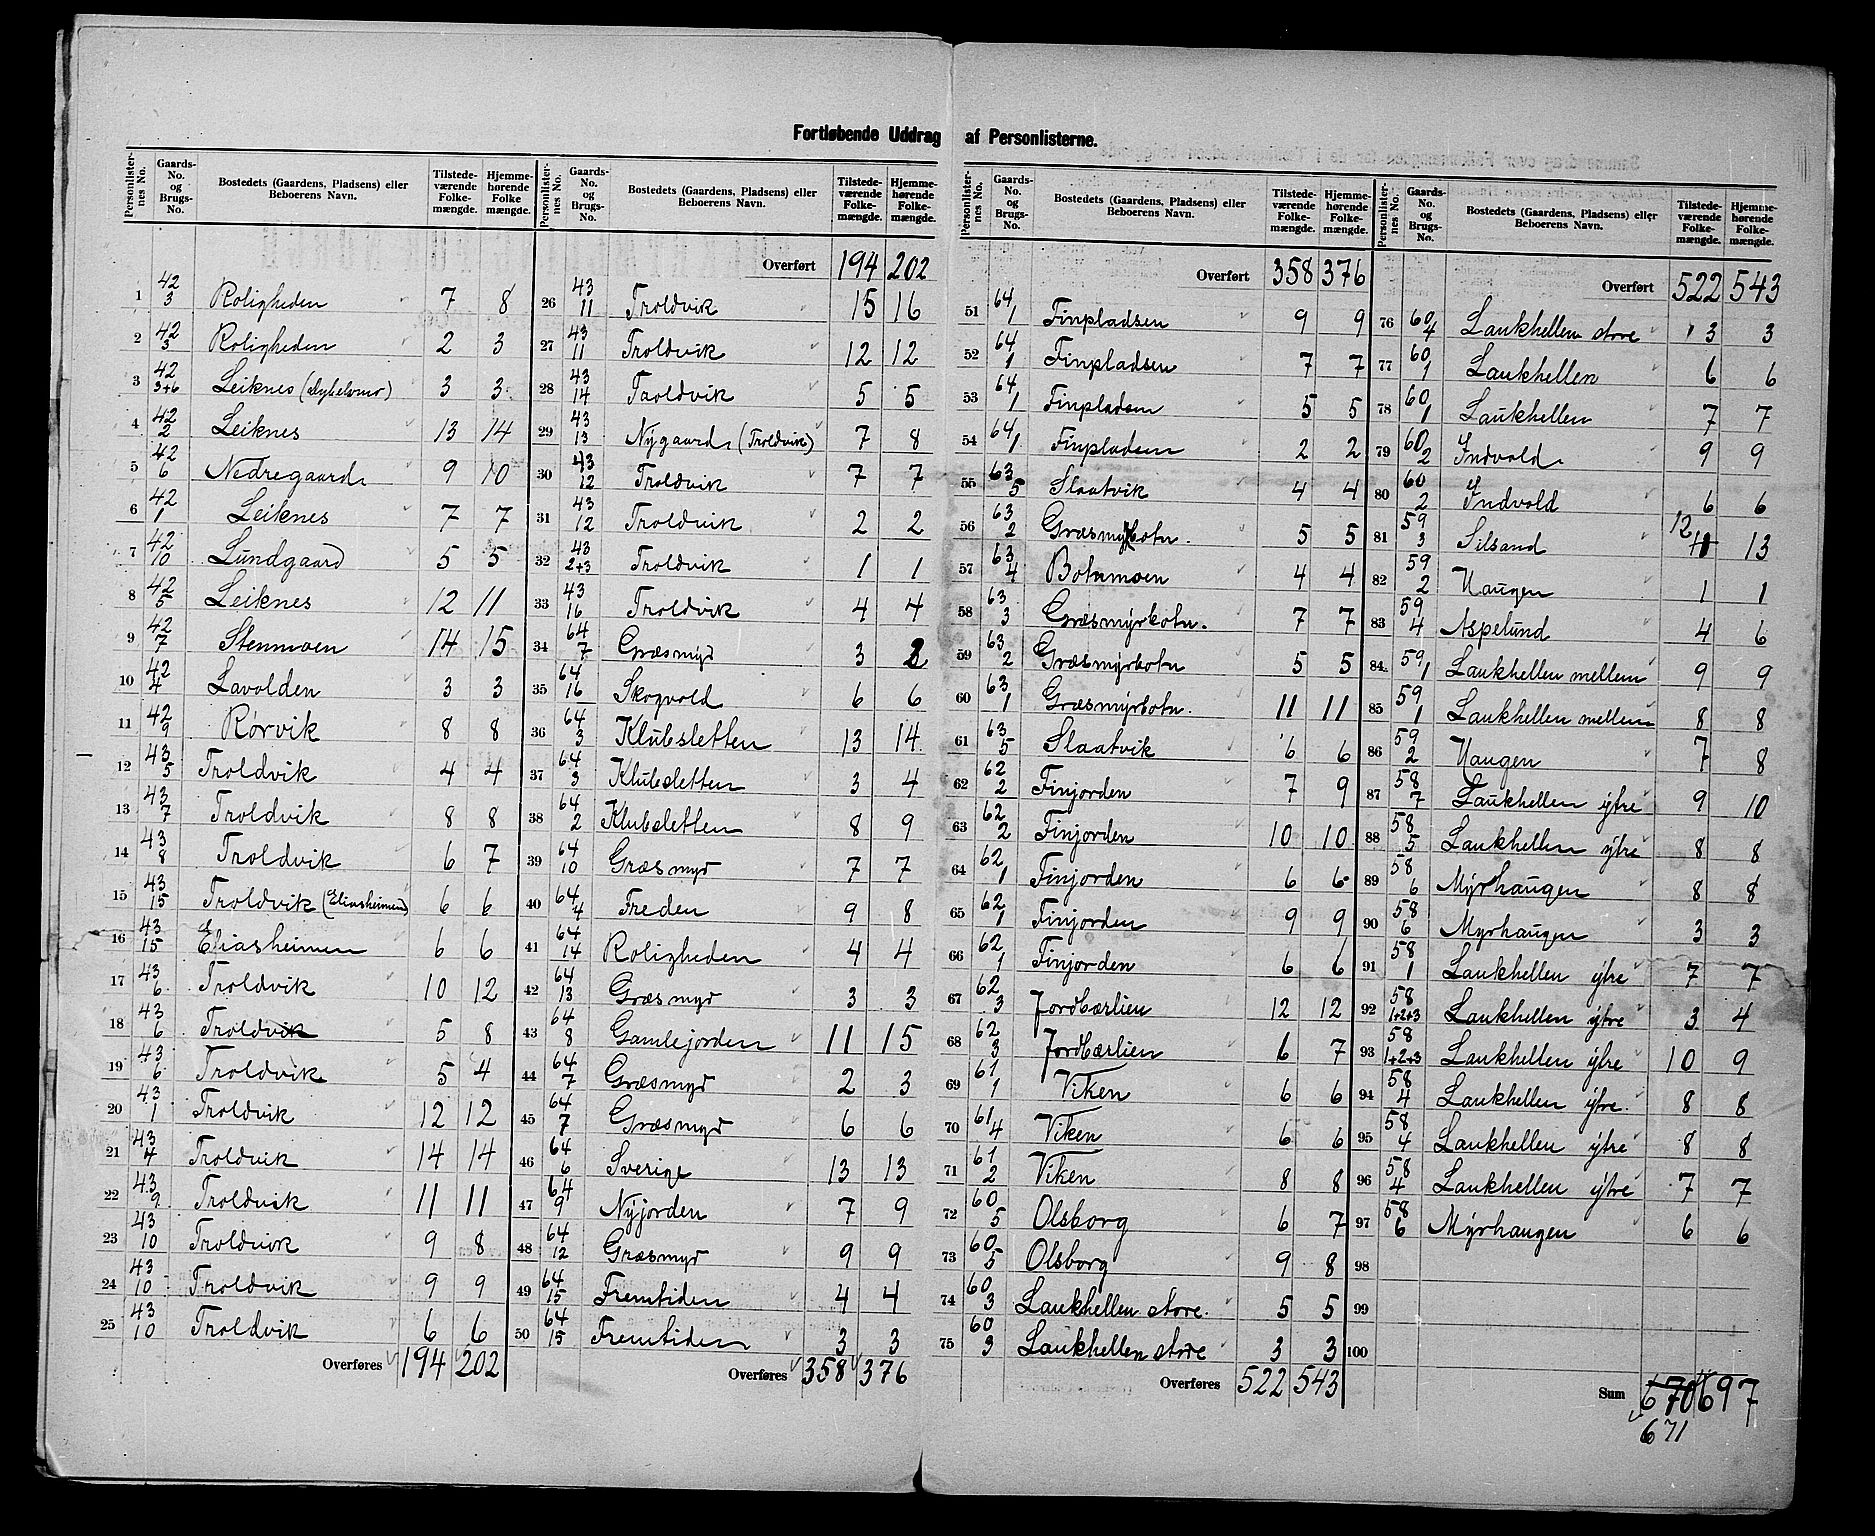 Fortløbende Uddrag af Personlisterne.
Personlisternes No. | Gaards-No. og Brugs-No. | Bostedets (Gaardens, Pladsens) eller Beboerens Navn. | Tilstedeværende Folkemængde. | Hjemmehørende Folkemængde.
1 42/3 Roligheden 7 8
2 42/3 Roligheden 2 3
3 42/3+6 Leiknes 3 3
4 42/2 Leiknes 13 14
5 42/6 Nedregaard 9 10
6 42/1 Leiknes 7 7
7 42/10 Lundgaard 5 5
8 42/5 Leiknes 12 11
9 42/7 Stenmoen 14 15
10 42/4 Lavolden 3 3
11 42/9 Rørvik 8 8
12 43/5 Troldvik 4 4
13 43/7 Troldvik 8 8
14 43/8 Troldvik 6 7
15 43/15 Troldvik (Eliasheimen) 6 6
16 43/15 Eliasheimen 6 6
17 43/6 Troldvik 10 12
18 43/6 Troldvik 5 8
19 43/6 Troldvik 5 4
20 43/1 Troldvik 12 12
21 43/4 Troldvik 14 14
22 43/9 Troldvik 11 11
23 43/10 Troldvik 9 8
24 43/10 Troldvik 9 9
25 43/10 Troldvik 6 6
Overføres 194 202
Personlisternes No. | Gaards-No. og Brugs-No. | Bostedets (Gaardens, Pladsens) eller Beboerens Navn. | Tilstedeværende Folkemængde. | Hjemmehørende Folkemængde.
Overført 194 202
26 43/11 Troldvik 15 16
27 43/11 Troldvik 12 12
28 43/14 Troldvik 5 5
29 43/13 Nygaard (Troldvik) 7 8
30 43/12 Troldvik 7 7
31 43/12 Troldvik 2 2
32 43/2+3 Troldvik 1 1
33 43/16 Troldvik 4 4
34 64/7 Græsmyr 3
35 64/16 Skogvold 6 6
36 64/3 Klubsletten 13 14
37 64/3 Klubsletten 3 4
38 64/2 Klubsletten 8 9
39 64/10 Græsmyr 7 7
40 64/4 Freden 9 8
41 64/14 Roligheden 4 4
42 64/13 Græsmyr 3 3
43 64/8 Gamlejorden 11 15
44 64/7 Græsmyr 2 3
45 64/7 Græsmyr 6 6
46 64/6 Sverige 13 13
47 64/9 Nyjorden 7 9
48 64/12 Græsmyr 9 9
49 64/15 Fremtiden 4 4
50 64/15 Fremtiden 3 3
Overføres 358 376
Personlisternes No. | Gaards-No. og Brugs-No. | Bostedets (Gaardens, Pladsens) eller Beboerens Navn. | Tilstedeværende Folkemængde. | Hjemmehørende Folkemængde.
Overført 358 376
51 64/1 Finpladsen 9 9
52 64/1 Finpladsen 7 7
53 64/1 Finpladsen 5 5
54 64/1 Finpladsen 2 2
55 63/5 Slaatvik 4 4
56 63/2 Græsmyrbotn. 5 5
57 63/4 Botnmoen 4 4
58 63/3 Græsmyrbotn. 7 7
59 63/2 Græsmyrbotn 5 5
60 63/1 Græsmyrbotn. 11 11
61 63/5 Slaatvik 6 6
62 62/2 Finjorden 7 9
63 62/2 Finjorden 10 10
64 62/1 Finjorden 6 6
65 62/1 Finjorden 9 9
66 62/1 Finjorden 6 6
67 62/3 Jordbærlien 12 12
68 62/3 Jordbærlien 6 7
69 61/1 Viken 6 6
70 61/4 Viken 6 6
71 61/2 Viken 8 8
72 60/5 Olsborg 6 7
73 60/5 Olsborg 9 8
74 60/3 Laukhellen store. 5 5
75 60/3 Laukhellen store 3 3
Overføres 522 543
Personlisternes No. | Gaards-No. og Brugs-No. | Bostedets (Gaardens, Pladsens) eller Beboerens Navn. | Tilstedeværende Folkemængde. | Hjemmehørende Folkemængde.
Overført 522 543
76 60/4 Laukhellen store 3 3
77 60/1 Laukhellen 6 6
78 60/1 Laukhellen 7 7
79 60/2 Indvold 9 9
80 60/2 Indvold 6 6
81 59/3 Silsand 12 11 13
82 59/2 Haugen 1 1
83 59/4 Aspelund 4 6
84 59/1 Laukhellen mellem 9 9
85 59/1 Laukhellen mellem 8 8
86 59/2 Haugen 7 8
87 58/7 Laukhellen ytre 9 10
88 58/5 Laukhellen ytre 8 8
89 58/6 Myrhaugen 8 8
90 58/6 Myrhaugen 3 3
91 58/1 Laukhellen ytre 7 7
92 58/1+2+3 Laukhellen ytre 3 4
93 58/1+2+3 Laukhellen ytre 10 9
94 58/4 Laukhellen ytre. 8 8
95 58/4 Laukhellen ytre 8 8
96 58/4 Laukhellen ytre 7 7
97 58/6 Myrhaugen 6 6
98
99
100
Sum 670 697
671